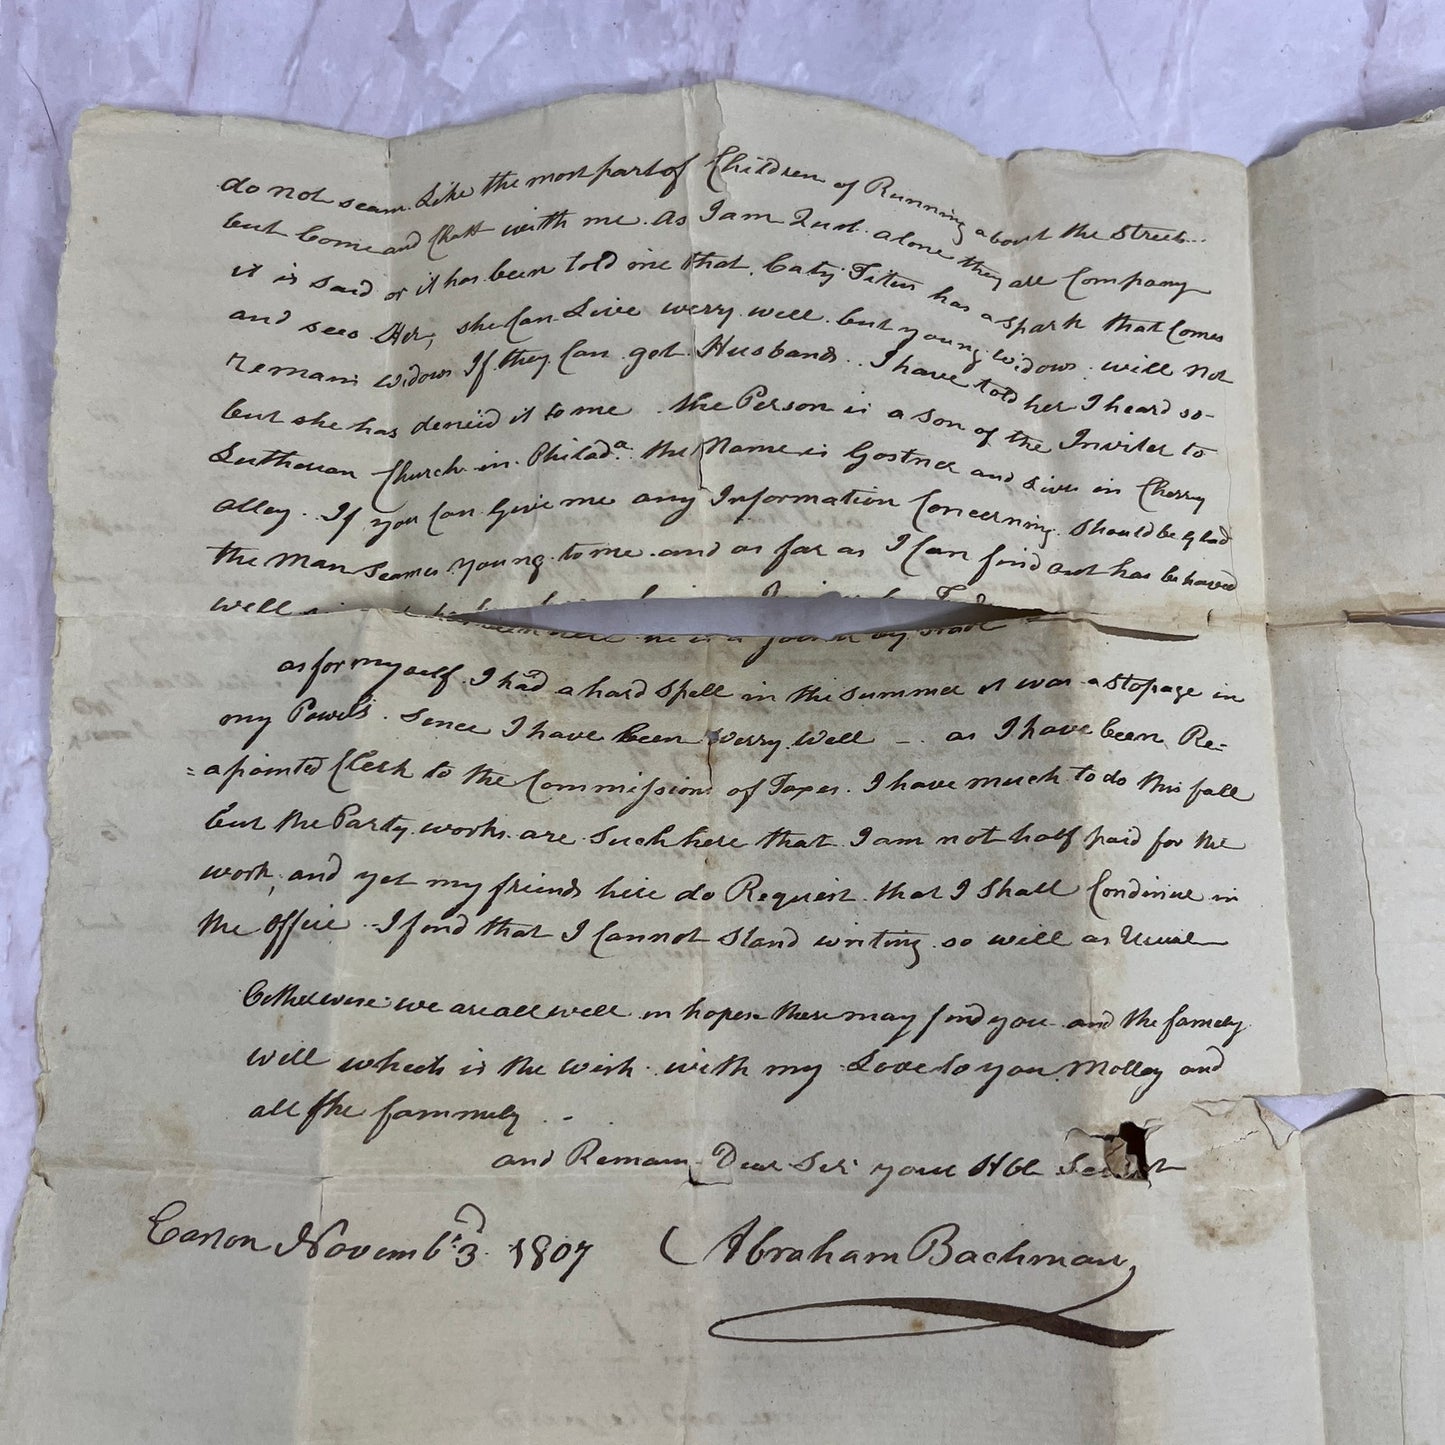 do not seam Like the most part of Children of Running about the Street
but Come and Chatt with me. as I am Just alone they are Company
it is said or it has been told me that Caty Titus has a spark that Comes
and sees Her, she Can Live werry well but young widows will not
remain widows If they Can get Husbands. I have told her I heard so
but she has denied it to me. the Person is a son of the Inviter to
Lutheran Church in Philada. the Name is Gostner and Live in Cherry
alley. If you Can Give me any Information Concerning Should be glad
the man seames young to me and as far as I Can find out has behaved
well
as for my self I had a hard spell in the summer it was a stopage in
my Powels. Sence I have been werry well - as I have been Re-
=apointed Clerk to the Commissions of Taxes. I have much to do this fall
but the Party works are such here that I am not half paid for the
work, and yet my friends here do Request that I Shall Continue in
the office. I find that I Cannot stand writing so well as Usual
Otherwise we are all well in hopes these may find you and the famely
well which is the wish with my Love to you Molley and
all the fammely
and Remain Dear Sir your Hbl
Easton Novembr. 3d 1807 Abraham Bachman